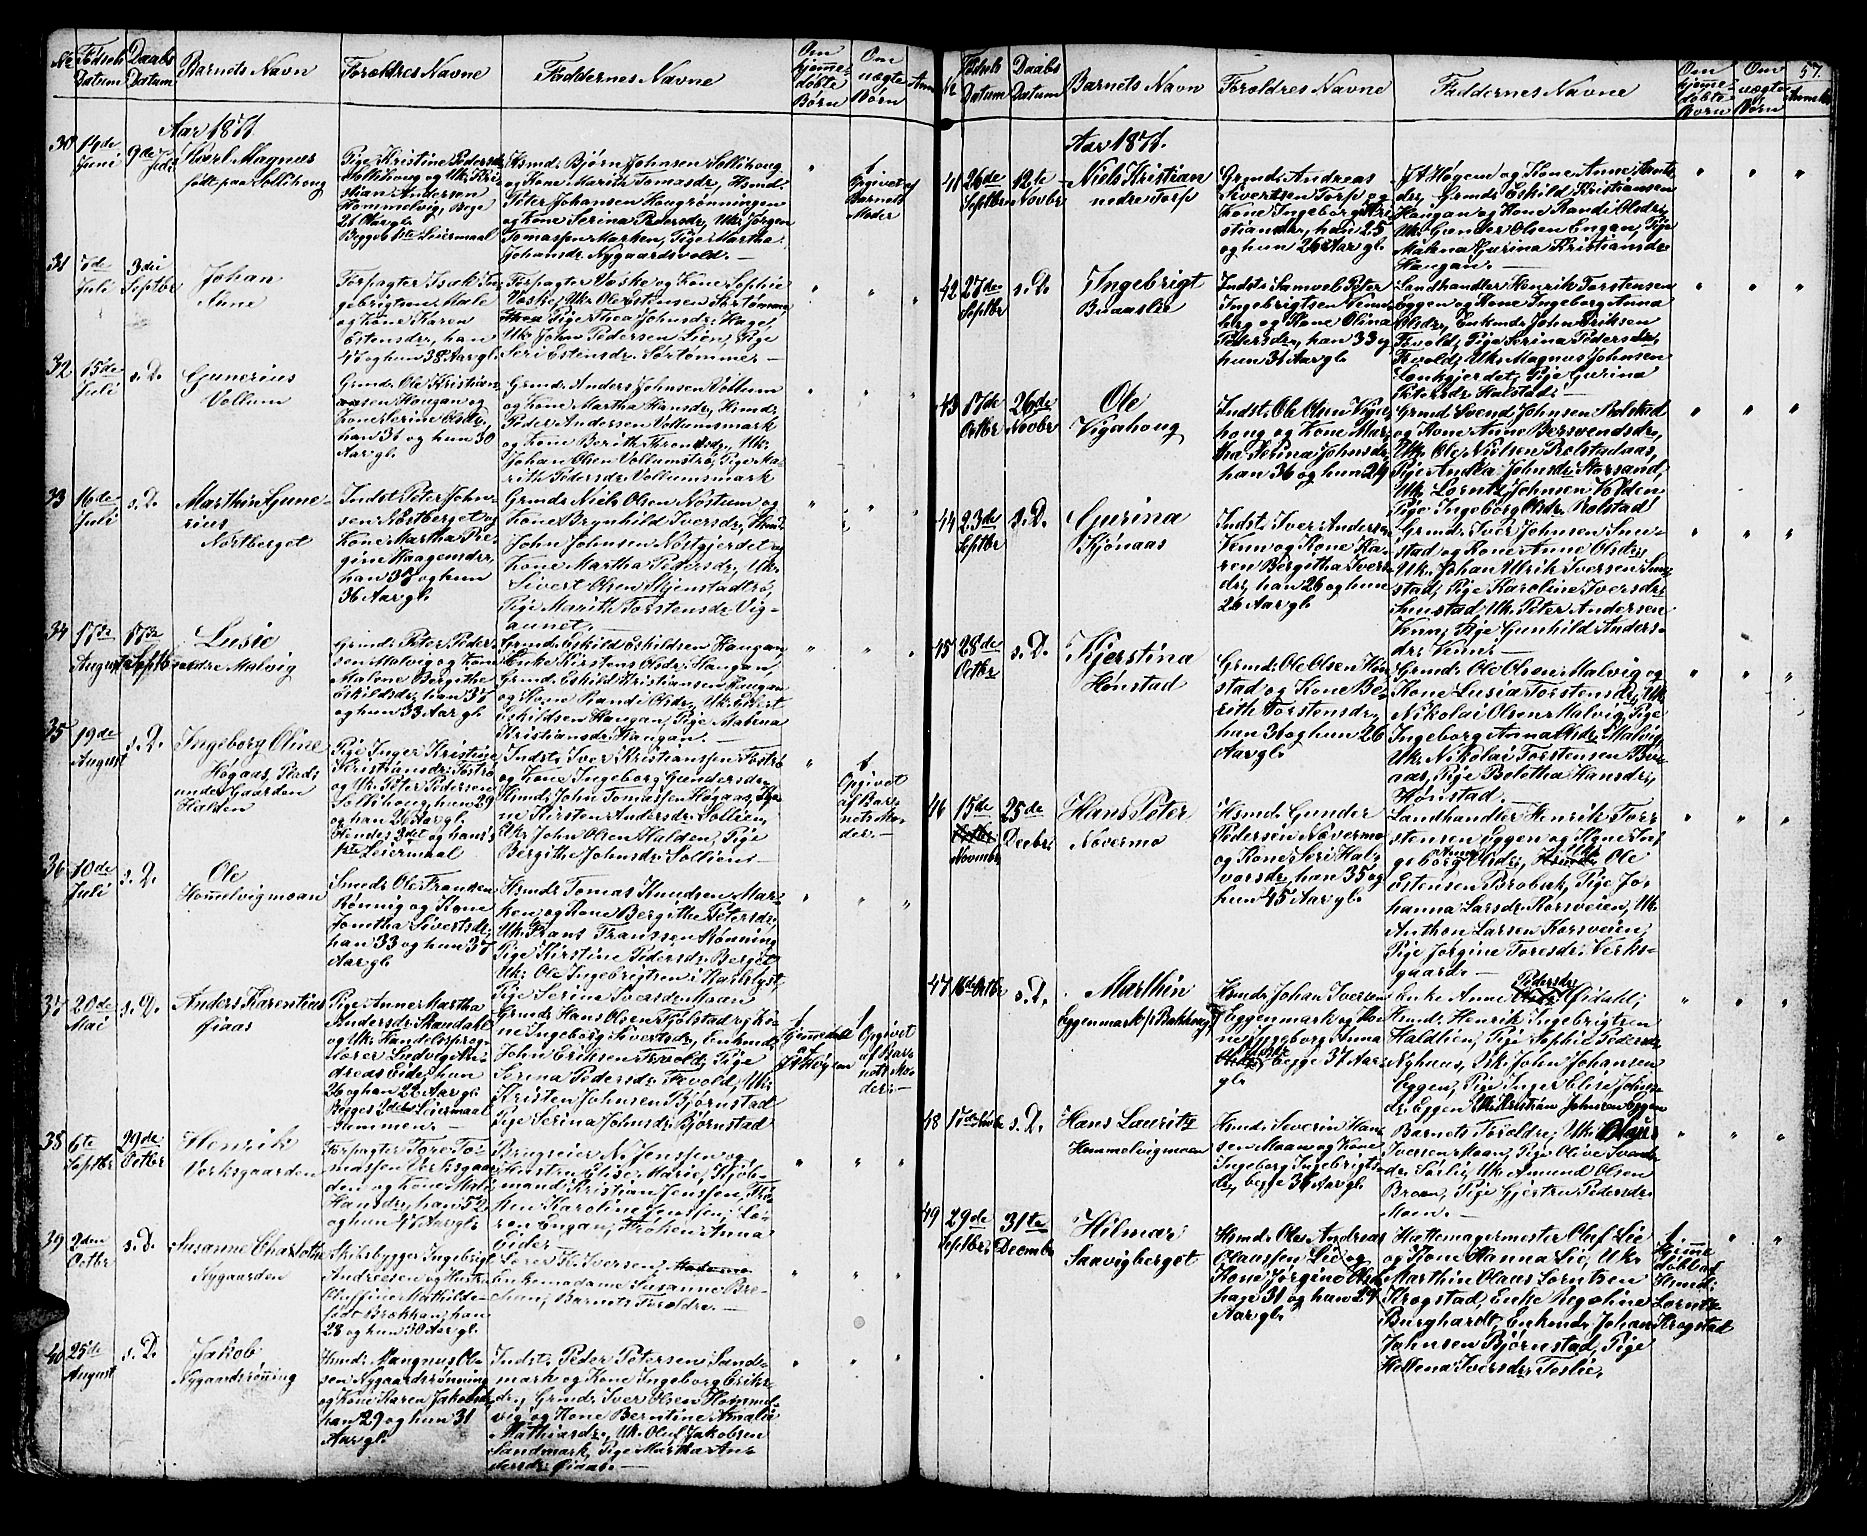 No Fødsels Datum
Daabs Datum
Barnets Navn
Forældres Navne
Faddernes Navne
Om hjemmedøbte Børn
Om uægte Børn
Anm
Aar 1871.
30 14de Juni
9de Juli
Karl Magnus
født paa Sollihoug
Pige Kristine Pedersdr
Sollihoug og Uk: Kri-
stian Andersen
Hommelvig, Bege
26 Aar gl.
Begges 1ste Leiermaal
Hsmd: Bjørn Johnsen Sollihoug
og Kone Marith Tomasdr, Hsmd:
Peter Johansen Haugrønningen
og Kone Serina Pedersdr, Uk: Jørgen
Tomassen Marken, Pige Martha
Johansdr Nygaardsvold. —
Opgivet af
Barnets
Moder
31 7de Juli
3die Septbr
Johan
Aune
Forpagter Isak In-
gebrigtsen Hale
og Kone Karen
Estensdr, han
46 og hun 38 Aar gl.
Forpagter Vaske og Kone Sophie
Vaske, Uk: Ole Estensen Sørtømme
Pige Thea Johnsdr Hage,
Uk: John Pedersen Lien, Pige
Seri Estensdr Sørtømmer —
32 15de Juli
s. D.
Gunerius
Vollum
Grmd: Ole Kristian-
sen Haugan og
Kone Serine Olsdr,
han 31 og hun 30
Aar gl.
Grmd: Anders Johnsen Vollum
og Kone Martha Hansdr, Hsmd:
Peder Andersen Vollumsmark
og Kone Berith Arontsdr, Uk:
Johan Olsen Vollumstrø, Pige Ma-
rith Pedersdr Vollumsmark
33 16de Juli
s. D.
Marthin Gune-
rius
Nostberget
Indst: Peter John-
sen Nostberget og
Kone Martha Re-
gine Haagensdr,
han 32 og hun
36 Aar gl.
Grmd: Niels Olsen Nostum og
Kone Brynhild Iversdr, Hsmd:
John Johnsen Nostgjerdet og
Kone Martha Pedersdr, Uk:
Sivert Olsen Mjenstadtrø,
Pige Marith Torstensdr Vig-
aunet. —
34 17de August
17de Septbr
Lusie
nedre Malvig
Grmd: Peter Peder-
sen Malvig og Kone
Malene Bergithe
Eskildsdr, han 37
og hun 33 Aar gl.
Grmd: Eskild Eskildsen Haugan
Enke Kirsten Olsdr Haugan,
Grmd: Eskild Kristiansen Haugan
og Kone Randi Olsdr, Uk: Edvert
Eskildsen Haugan, Pige Malena
Kristiansdr Haugan. —
35 19de August
s. D.
Ingeborg Oline
Høgaas, Plads
under Gaarden
Halden
Pige Inger Kristine
Kristiansdr: Fostrø
og Uk: Peter Pedersen
Sollihoug, hun 29
og han 24 Aar gl.
Hendes 2det og hans
1ste Leiermaal
Indst: Iver Kristiansen Fostrø
og Kone Ingeborg Gundersdr,
Hsmd: John Tomassen Høgaas, Ko-
ne Kirsten Andersdr Sollien,
Uk: John Olsen Halden, Pige
Bergithe Johnsdr: Sollien —
Opgivet
af Bar-
nets Mo-
der. —
36 10de Juli
s. D.
Ole
Hommelvigmoan
Smed: Ole Fransen
Rønnig og Kone
Jonetha Sivertsdr,
han 33 og hun 37
Aar gl.
Hsmd: Tomas Knudsen Mar-
ken, og Kone Bergithe Petersdr,
Uk: Frans Franssen Rønning
Pige Kirstine Pedersdr: Berget
Uk: Ole Ingebrigtsen: Karlslyst,
Pige Serina Iversdr Moan
37 20de Mai
s. D.
Anders Karentius
Øiaas
Pige Anne Martha
Andersdr: Skandal
og Uk: Handelsprog-
torer Ludvig An-
dreas Eide, hun
26 og han 22 Aar gl.
Begges 2det Leiermaal
Sammen. —
Grmd: Hans Olsen Fjølstad og Ko-
ne Ingeborg Sivertsdr, Enkmd:
John Eriksen Tevold, Pige
Serina Pedersdr: Tevold, Uk:
Kristen Johnsen Bjørnstad
Pige Serina Johnsdr: Bjørnstad
Hjemmedøbt
af
J. A. Høgean
Opgivet
af Bar-
nets Mo-
der. —
38 6te Septbr
29de Octbr
Henrik
Verksgaarden
Forpagter Tore To-
massen Verksgaar-
den og Kone Mali
Hansdr, han 52
og hun 46 Aar gl.
Brugseier N. Jenssen og
Hustru Elise Marie, Kjøb-
mand Kristian Jenssen, Frø-
ken Karoline Jenssen, Lø-
ren Engan, Frøken: Anna
Eider —
39 2den Octbr
s. D.
Susanne Charlotte
Nygaarden
Skibsbygger Ingebrigt
Andreesen og Hustru
Oluffine Mathilde
født Brekhan, han
28 og hun 30 Aar gl.
Lorer K. Iversen,
Enkemadame Susanne Bre-
chan, Barnets Forældre. —
40 25de August
s. D.
Jakob
Nygaardsrønning
Hsmd: Mangnus Ol-
sen Nygaardsrønning
og Kone Karen Jakobsdr,
han 29 og hun 31
Aar gl.
Indst: Peder Petersen Sands-
mark og Kone Ingeborg Eriks-
dr, Grmd: Iver Olsen Hommel-
vig og Kone Berntine Amalie
Mathiasdr, Uk: Oluf Jakobsen
Sandmark, Pige Martha An-
dersdr Øiaas. —
57.
No Fødsels Datum
Daabs Datum
Barnets Navn
Forældres Navne
Faddernes Navne
Om hjemmedøbte Børn
Om uægte Børn
Anmrk
Aar 1871.
41 26de Septbr
12te Novbr
Niels Kristian
nedre Torp
Grmd: Andreas
Sivertsen Torp og
Kone Ingeborg Kri-
stiansdr, han 25
og hun 26 Aar gl.
J. A. Høgene og Kone Anne Arnts-
dr, Grmd: Eskild Kristiansen
Haugan og Kone Randi Olsdr,
Uk: Gunder Olsen Engan, Pige
Malena Gurina Kristiansdr
Haugan. —
42 27de Septbr
s. D.
Ingebrigt
Buaaslie
Indst: Samuel Peter
Ingebrigtsen Venn-
berg og Kone Olina
Pedersdr, han 33 og
hun 31 Aar gl.
Landhandler Henrik Torstensen
Eggen og Kone Ingeborg Anna
Olsdr, Enkmd: John Eriksen
Tevold, Pige Serina Pedersdr,
Tevold, Uk: Magnus Johnsen
Lænkgjerdet, Pige Gurina
Petersdr Kalstad. —
43 17de Octbr
26de Novbr
Ole
Vigahoug
Indst: Ole Olsen Viga-
houg og Kone Mar-
tha Serina Johnsdr,
han 36 og hun 29
Grmd: Svend Johnsen Rolstad
og Kone Anne Bersvendsdr,
Uk: Ole Nielsen Rolstadaas,
Pige Andrea Johnsdr Storsand,
Uk: Lorntz Johnsen Volden
Pige Ingeborg Olsdr. Rolstad
44 23de Septbr
s. D.
Gurina
Kjønaas
Indst: Iver Andersen
Venn og Kone Ka-
ren Bergitha Ivers-
dr, han 26 og hun
26 Aar gl.
Grmd: Iver Johnsen Snu-
stad og Kone Anne Olsdr,
Uk: Johan Ulrik Iversen Snu-
stad, Pige Karoline Iversdr:
Snustad, Uk: Peter Andersen
Venn, Pige Gunhild Anders-
dr: Venn. —
45 28de Octbr
s. D.
Kjerstina
Hønstad
Grmd: Ole Olsen Høn-
stad og Kone Be-
rith Torstensdr,
han 31 og hun 26
Aar gl.
Grmd: Ole Olsen Malvig og
Kone Lusia Torstensdr, Uk:
Nikolai Olsen Malvig, Pige
Ingeborg Anna Olsdr: Malvig,
Uk: Nikolai Torstensen Bu-
aas, Pige Boletha Hansdr,
Hønstad.
46 15de
Novembr
25de Decbr:
Hans Peter
Novermo
Hsmd: Gunder
Pedersen Novermo
og Kone Seri Hal-
vorsdr, han 35 og
hun 45 Aar gl.
Landhandler Henrik Tor-
stensen Eggen og Kone In-
geborg Anna Olsdr, Uk: Ole
Estensen Brobak, Pige Jo-
hanna Larsdr Korsveien, Uk:
Anthon Larsen Korsveien,
Pige Jørgine Toresdr: Verks-
gaard. —
47 16de Octbr
s. D.
Marthin
Eggenmark/: Bakhoug
Hsmd: Johan Iversen
Eggenmark og Ko-
ne Ingeborg Anna
begge 37 Aar
gl.
Enke Anne Pedersdr Øidahl,
Hsmd: Henrik Ingebrigtsen
Haldlien, Pige Sophie Pedersdr
Nyhuus, Uk: John Johansen
Eggen, Pige Inger Elise Johns-
dr: Eggen Uk: Kristian Johnsen Eggen
48 17de Novbr
s. D.
Hans Lauritz
Hommelvigmoen
Hsmd: Severin Han-
sen Moan og Kone
Ingeborg Ingebrigts-
dr, begge 36 Aar gl.
Barnets Forældre, Uk: Olaus
Iversen Moan, Pige Olive Svends-
dr: Sørlie, Uk: Amund Olsen
Broen, Pige Gjertru Pedersdr:
Moen. —
49 29de Septbr:
31te Decembr
Hilmar
Saavigberget
Hsmd: Ole Andreas
Olaussen Lie og
Kone Jørgine Olsdr
hage 31 og han 29
Aar gl.
Hattemagermester Olef Lie
og Kone Hanna Lie, Uk:
Marthin Olaus Lorntsen
Krogstad, Enke Regeline
Burghardt, Enkmd: Johan
Johnsen Bjørnstad, Pige
Hellena Iversdr: Toslie.
Hjemme
døbt af
Hsmd:
Lornts
Krogstad